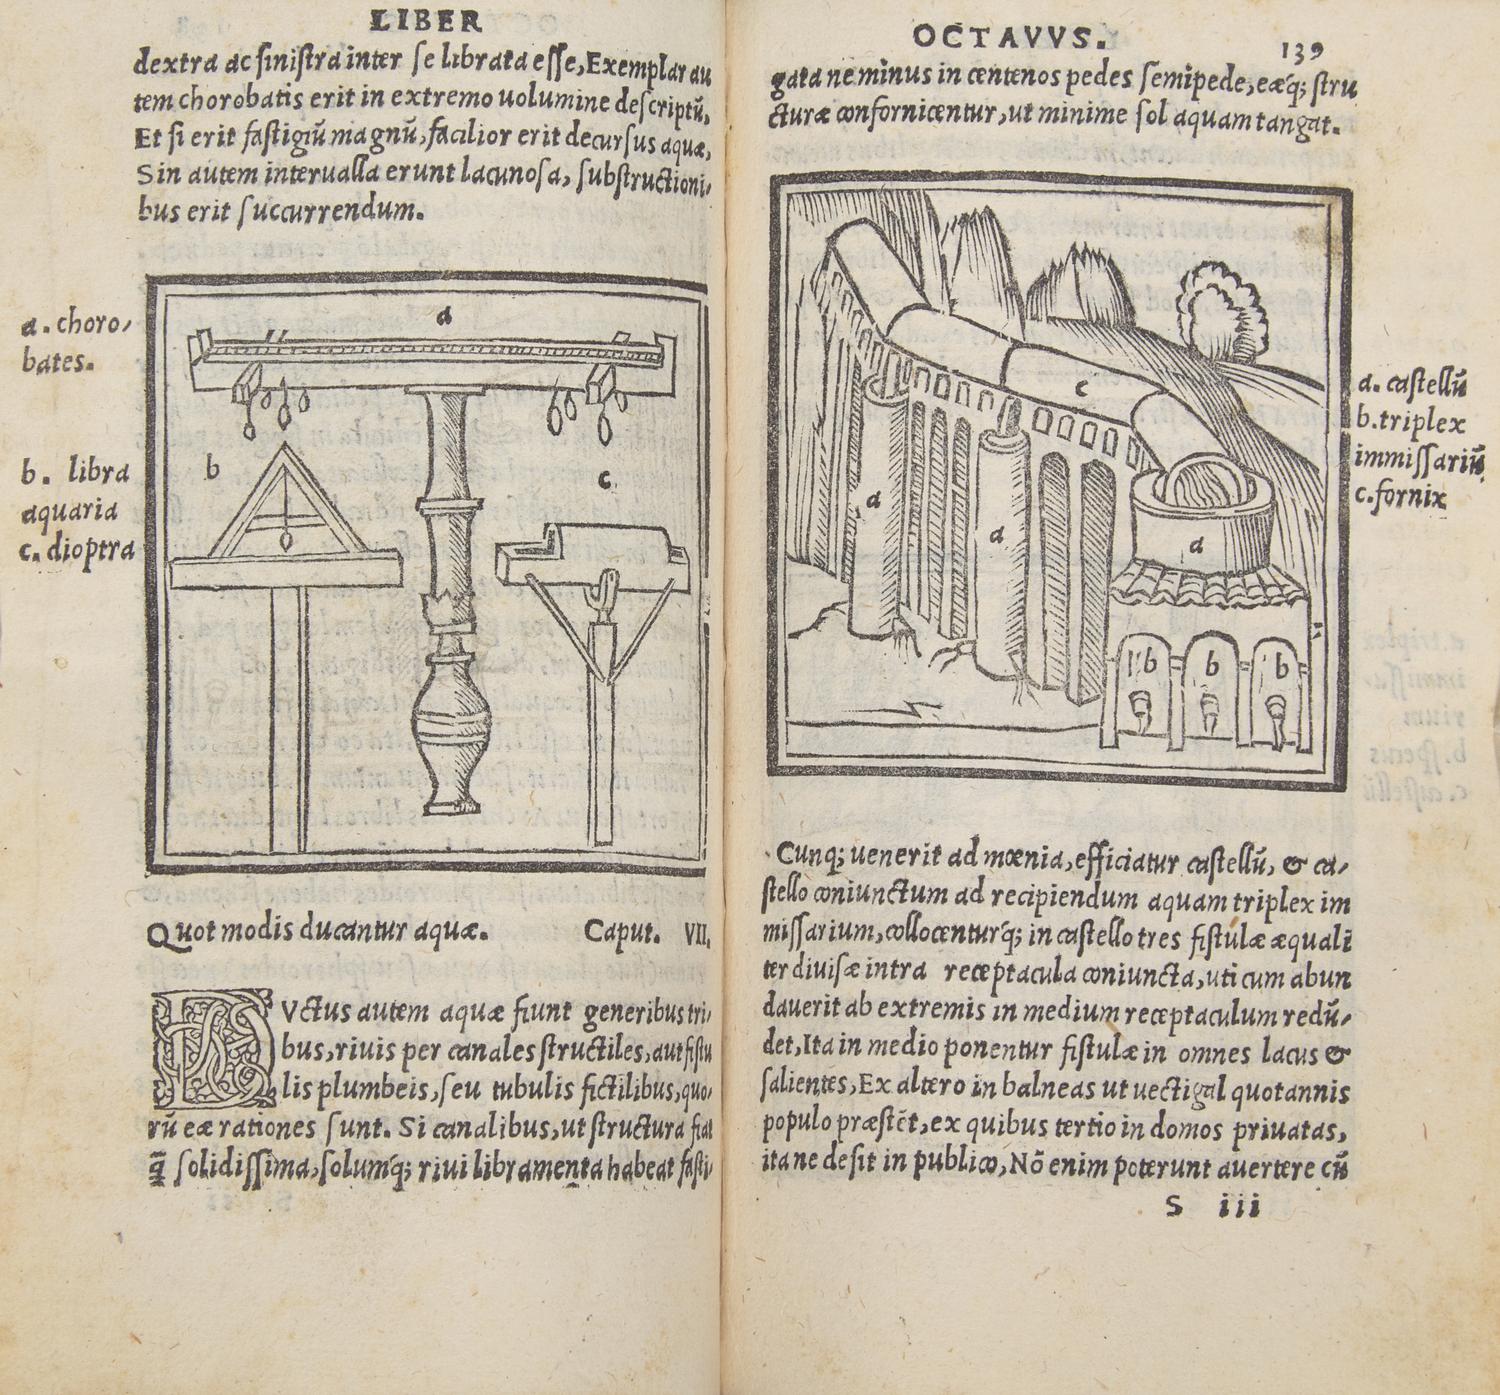 LIBER
dextra ac ſiniſtra inter ſe librata eſſe, Exemplar au
tem chorobatis erit in extremo uolumine deſcriptũ,
Et ſi erit faſtigiũ magnũ, facilior erit decurſus aquæ,
Sin autem interualla erunt lacunoſa, ſubſtructioni-
bus erit ſuccurrendum.
a. choro-
bates.
b. libra
aquaria
c. dioptra
a
b
c
Quot modis ducantur aquæ. Caput. VII.
DVctus autem aquæ fiunt generibus tri-
bus, riuis per canales ſtructiles, aut fiſtu
lis plumbeis, ſeu tubulis fictilibus, quo-
rũ eæ rationes ſunt. Si canalibus, ut ſtructura fiat
q̃ ſolidiſſima, ſolumq́; riui libramenta habeat faſti-
OCTAVVS. 139
gata ne minus in centenos pedes ſemipede, eæq́; ſtru
cturæ confornicentur, ut minime ſol aquam tangat.
a. caſtellũ
b. triplex
immiſſariũ
c. fornix
c
a
a
a
b b b
Cunq; uenerit ad mœnia, efficiatur caſtellũ, & ca-
ſtello coniunctum ad recipiendum aquam triplex im
miſſarium, collocenturq́; in caſtello tres fiſtulæ æquali
ter diuiſæ intra receptacula coniuncta, uti cum abun
dauerit ab extremis in medium receptaculum redũ-
det, Ita in medio ponentur fiſtulæ in omnes lacus &
ſalientes, Ex altero in balneas ut uectigal quotannis
populo præſtẽt, ex quibus tertio in domos priuatas,
ita ne deſit in publico, Nõ enim poterunt auertere cũ
S iii